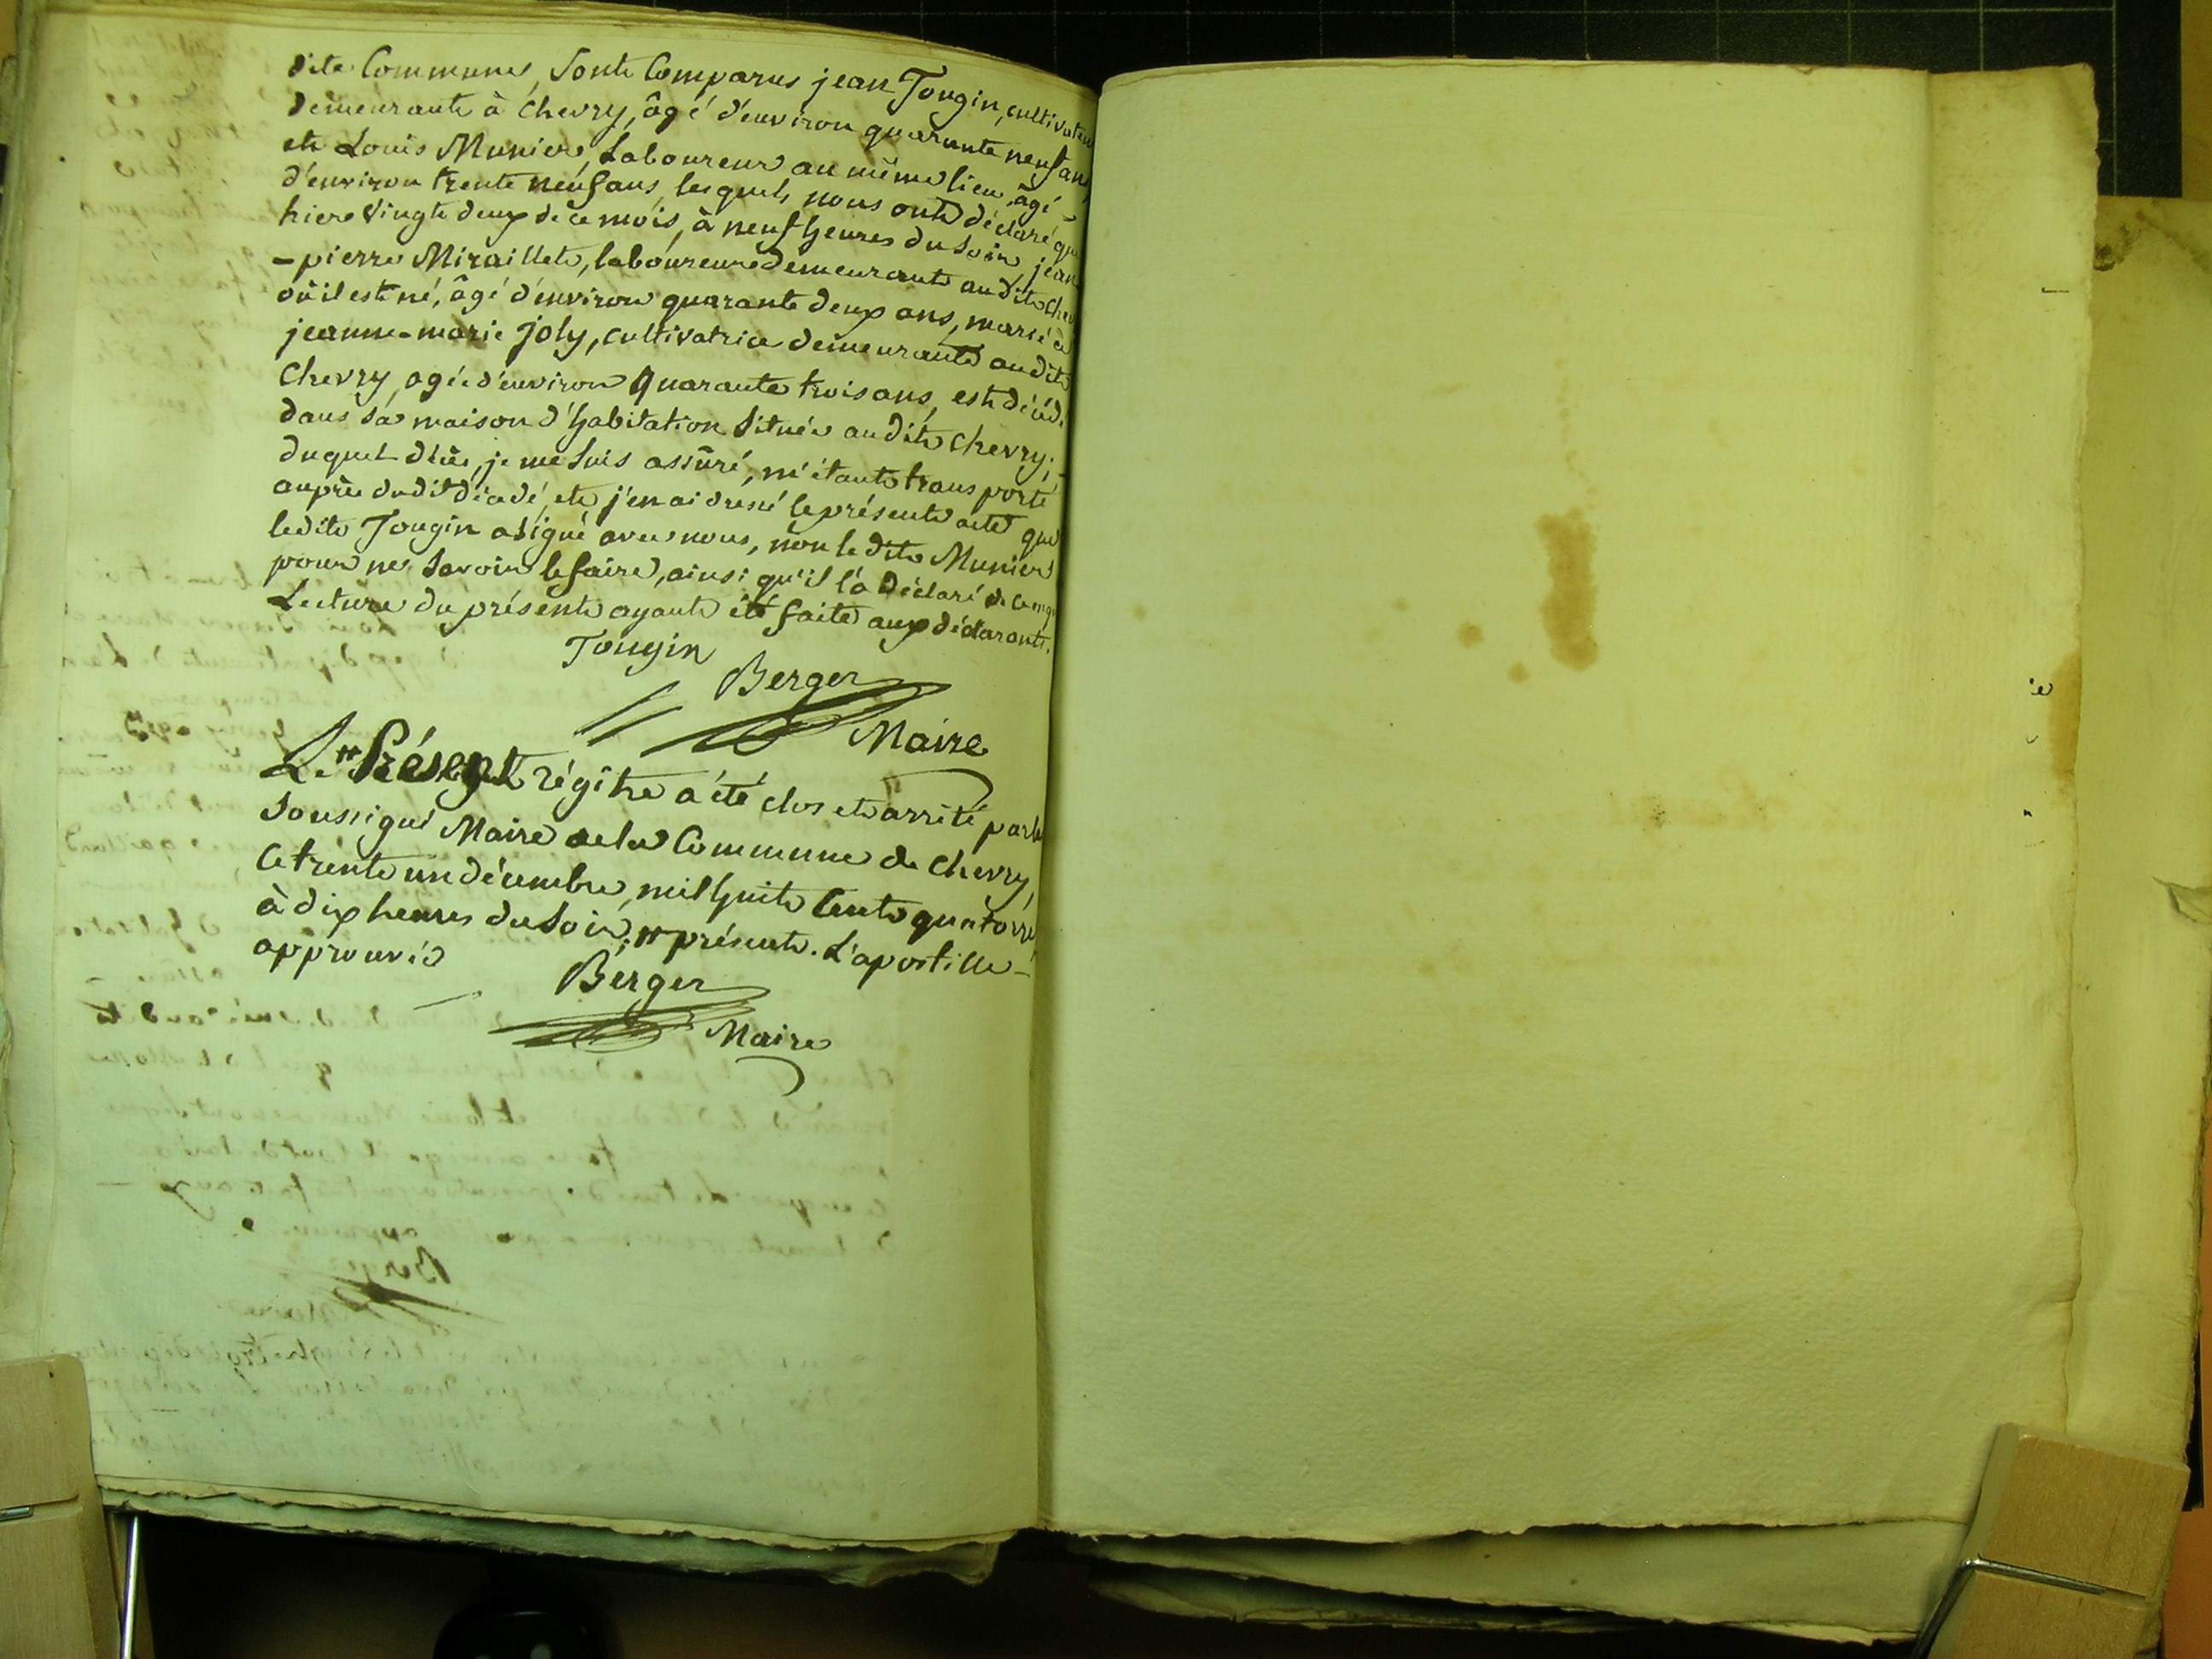 dite Commune, Sont Comparus jean Tougin, cultivateur
demeurant à Chevry, âgé d'environ quarante neuf ans,
et Louis Munier, Laboureur au même lieu, âgé
d'environ trente neuf ans, lesquels nous ont déclaré que
hier Vingt deux de ce mois, à neuf heures du Soir jean
-pierre Miraillet, laboureur demeurant audit Chev
où il est né, âgé d'environ quarante deux ans, marié à
jeanne-marie joly, cultivatrice demeurante audit
Chevry, agée d'environ Quarante trois ans, est décédé
dans sa maison d'habitation Située audit Chevry;
duquel décès, je me Suis assûré, m'étant transporté
auprès dudit décédé, et j'en ai dressé le présent acte que
ledit Tougin a Signé avec nous, non ledit Munier
pour ne Savoir le faire, ainsi qu'il l'a déclaré de ce enquis
Lecture du présent ayant été faite aux déclarants.
Tougin
Berger
Maire
Le Présent régitre a été clos et arrêté par le
Soussigné Maire de la Commune de Chevry,
Ce trente un décembre, mil huit Cent quatorze
à dix heures du Soir, présent. L'apostille
approuvée
Berger
Maire